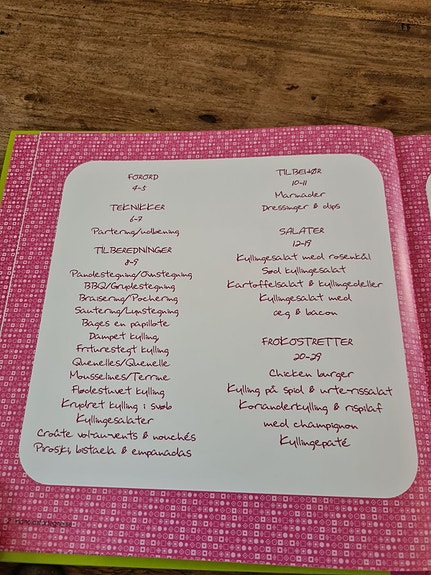 FORORD
4-5
TEKNIKKER
6-7
Partering/udbening
TILBEREDNINGER
8-9
Pandestegning/Ovnstegning
BBQ/Grydestegning
Braisering/Pochering
Sautering/Lynstegning
Bages en papillote
Dampet kylling
Friturestegt kylling
Quenelles/Quenelle
Mousselines/Terrine
Flødestuvet kylling
Krydret kylling i svøb
Kyllingesalater
Croûte vol-au-vents & bouchés
Piroski, bistaela & empanadas
TILBEHØR
10-11
Marinader
Dressinger & dips
SALATER
12-19
Kyllingesalat med rosenkål
Sød kyllingesalat
Kartoffelsalat & kyllingedeller
Kyllingesalat med
æg & bacon
FROKOSTRETTER
20-29
Chicken burger
Kylling på spid & urte-rissalat
Korianderkylling & rispilaf
med champignon
Kyllingepaté